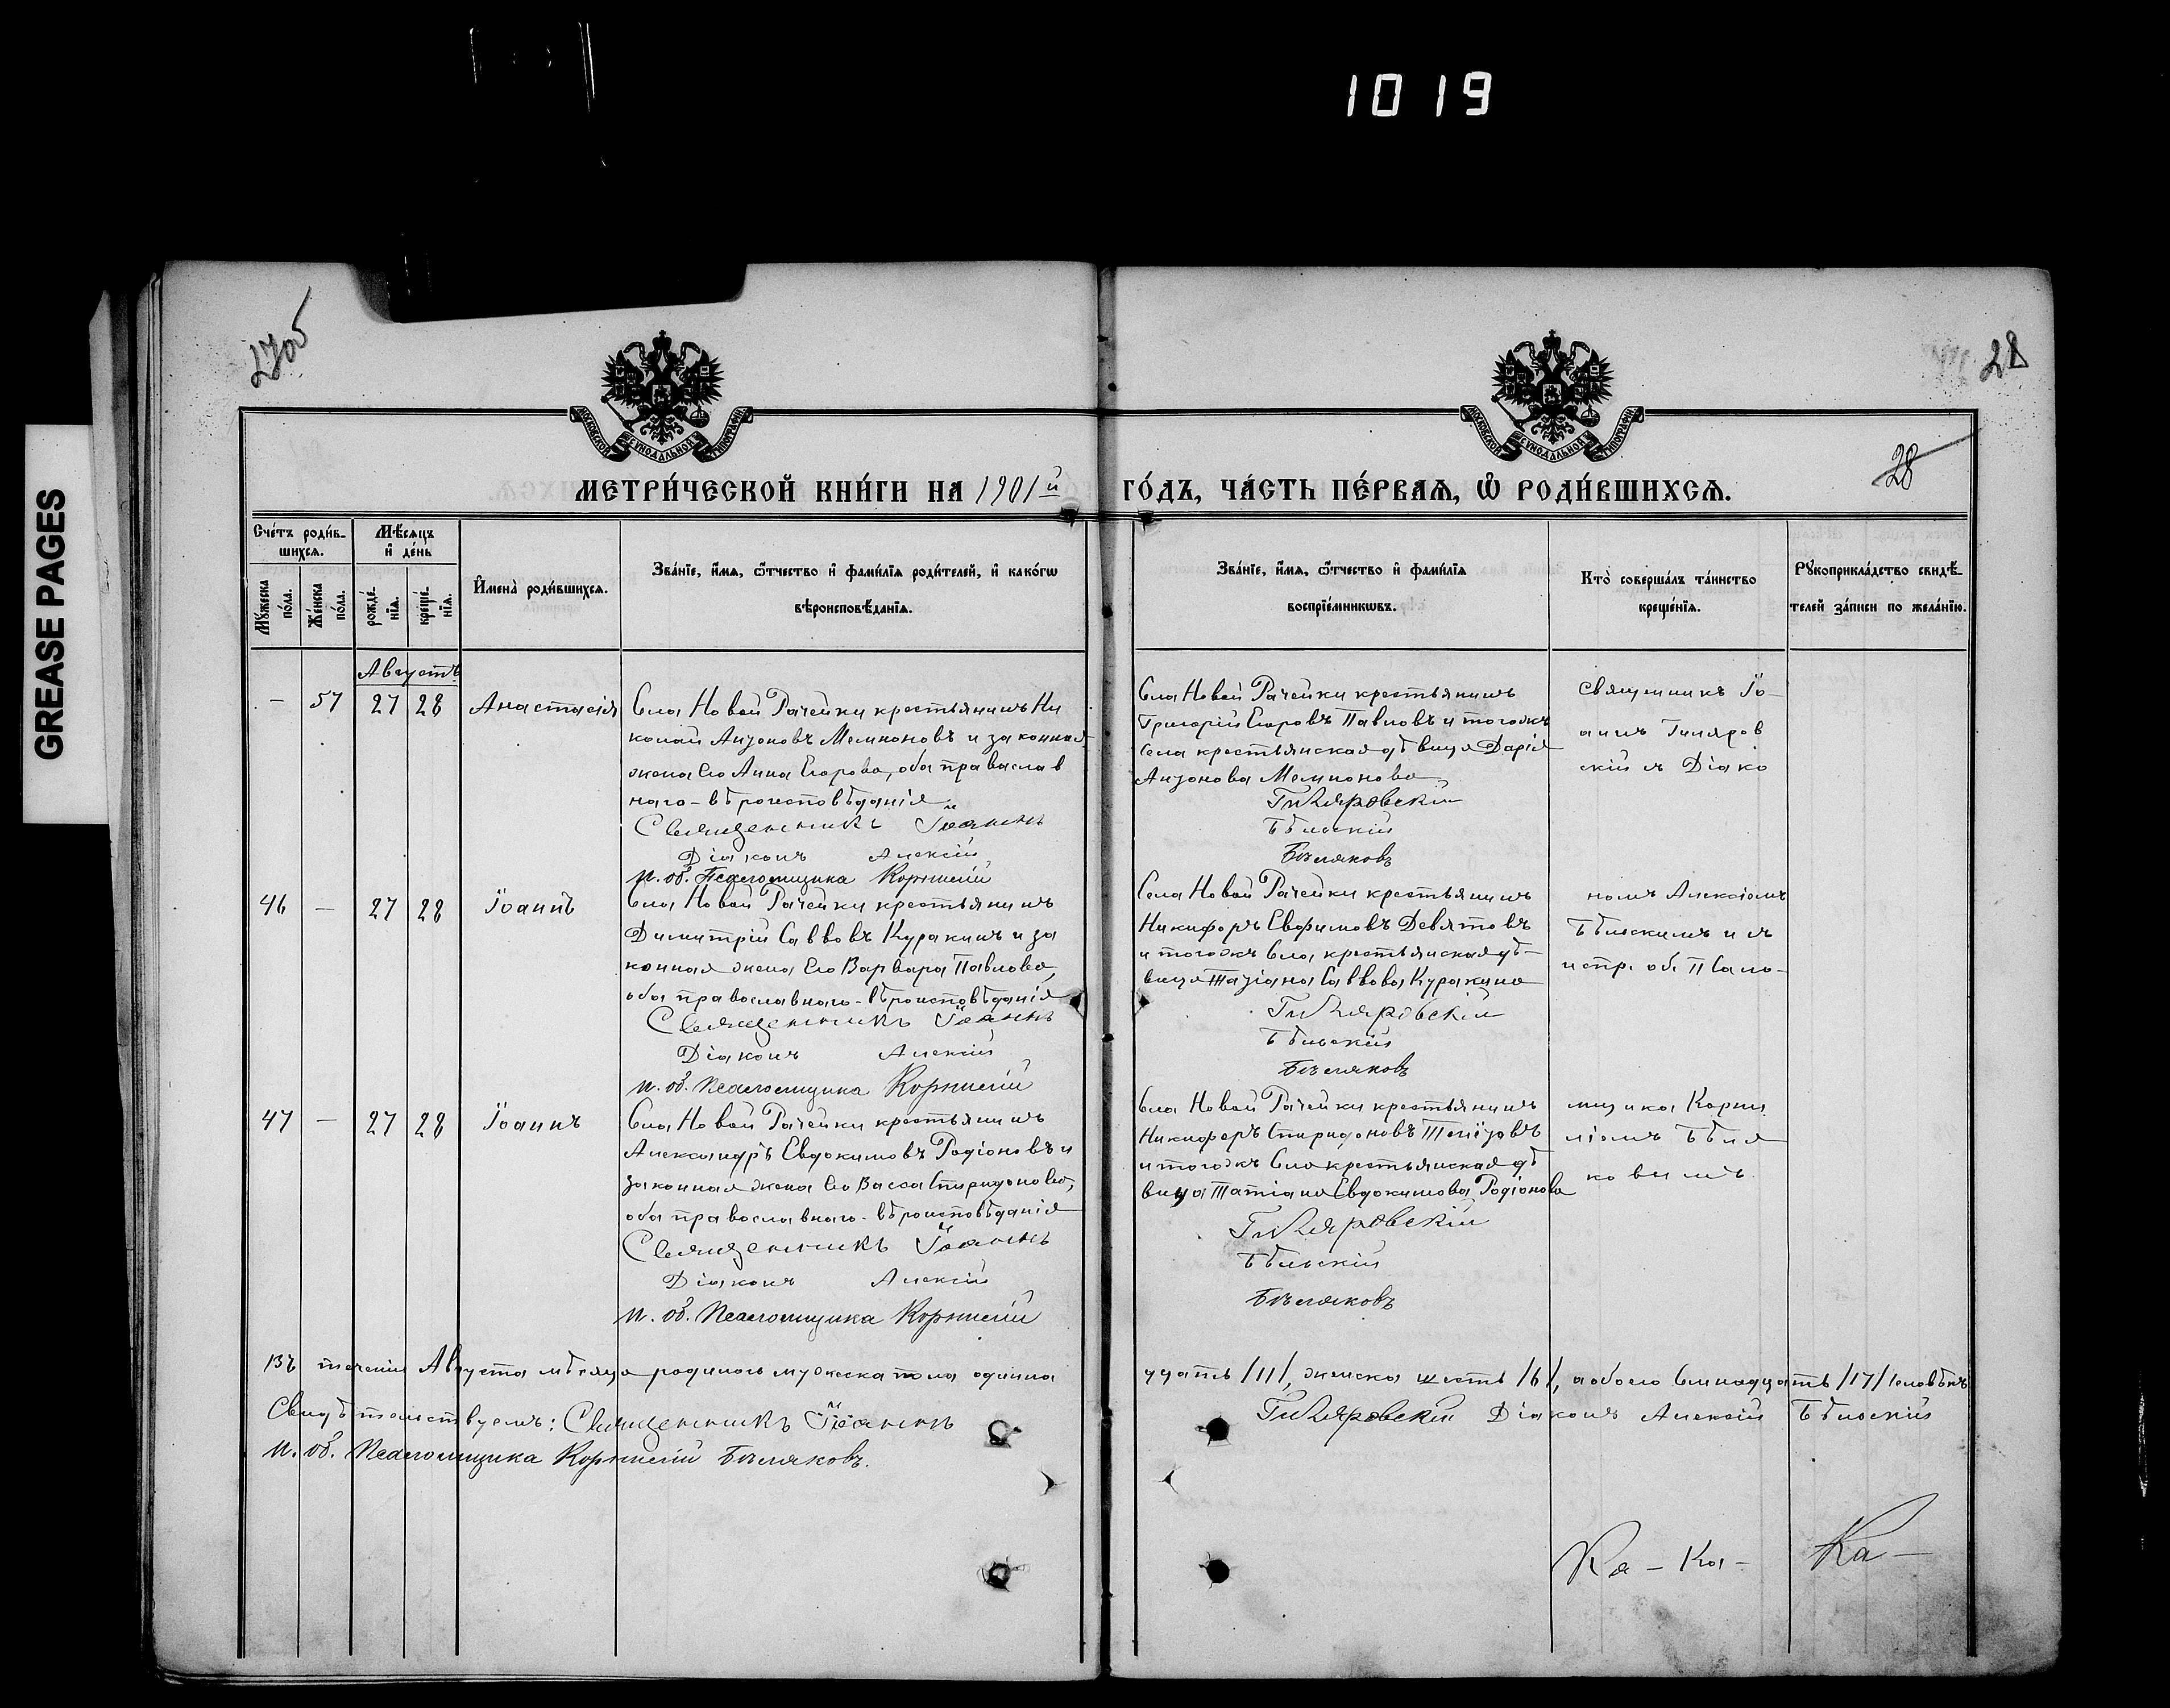 1019
GREASE PAGES
27об
28
28
МОСКОВСКОЙ СѴНОДАЛЬНОЙ ТИПОГРАФІИ
МОСКОВСКОЙ СѴНОДАЛЬНОЙ ТИПОГРАФІИ
МЕТРИ́ЧЕСКОЙ КНИ́ГИ НА 1901й ГО́ДЪ, ЧА́СТЬ ПЕ́РВАѦ, Ѽ РОДИ́ВШИХСѦ.
Сче́тъ роди́в-
шихсѧ.
Мꙋ́жеска по́ла.
Же́нска по́ла.
Мѣ́сѧцъ
и҆ де́нь
рожде́-
нїѧ.
креще́-
нїѧ.
И҆мена̀ роди́вшихсѧ.
Зва́нїе, и҆́мѧ, ѻ҆́тчество и҆ фами́лїѧ роди́телей, и҆ како́гѡ
вѣроисповѣ́данїѧ.
Зва́нїе, и҆́мѧ, ѻ҆́тчество и҆ фами́лїѧ
воспрїе́мникѡвъ.
Кто̀ соверша́лъ та́инство
креще́нїѧ.
Рꙋкоприкла́дство свидѣ́-
телей за́писи по жела́нїю.
Августъ
— 57 27 28 Анастасія
Села Новой Рачейки крестьянинъ Ни
колай Антоновъ Мемноновъ и законная
жена его Анна Егорова, оба православ
наго-вѣроисповѣданія
Священникъ Іоаннъ
Діаконъ Алексій
И. об. Псаломщика Корнилій
Села Новой Рачейки крестьянинъ
Григорій Егоровъ Павловъ и тогоже
села крестьянская дѣвица Дарія
Антонова Мемнонова
Гиляровскій
Бѣльскій
Бѣляковъ
Священникъ Іо-
аннъ Гиляров
скій съ Діако
46 — 27 28 Іоаннъ
Села Новой Рачейки крестьянинъ
Димитрій Саввовъ Куракинъ и за
конная жена его Варвара Павлова,
оба православнаго-вѣроисповѣданія
Священникъ Іоаннъ
Діаконъ Алексій
И. об. Псаломщика Корнилій
Села Новой Рачейки крестьянинъ
Никифоръ Евфимовъ Девятовъ
и тогожъ Села крестьянская дѣ-
вица Татіана Саввова Куракина
Гиляровскій
Бѣльскій
Бѣляковъ
номъ Алексіемъ
Бѣльскимъ и съ
испр. об. Псало-
47 — 27 28 Іоаннъ
Села Новой Рачейки крестьянинъ
Александръ Евдокимовъ Родіоновъ и
законная жена его Васса Спиридонова,
оба православнаго-вѣроисповѣданія
Священникъ Іоаннъ
Діаконъ Алексій
И. об. Псаломщика Корнилій
Села Новой Рачейки крестьянинъ
Никифоръ Спиридоновъ
и тогожъ Села крестьянская дѣ
вица Татіана Евдокимова Родіонова
Гиляровскій
Бѣльскій
Бѣляковъ
мщика Корни
ліемъ Бѣля
ковымъ
Въ теченіи Августа мѣсяца родилось мужеска пола одинна
дцать /11/, женска шесть /6/, а обоего Семнадцать /17/ человѣкъ
Свидѣтельствуемъ: Священникъ Іоаннъ Гиляровскій Діаконъ Алексій Бѣльскій
И. об. Псаломщика Корнилій Бѣляковъ.
Ка — Ка — Ка —